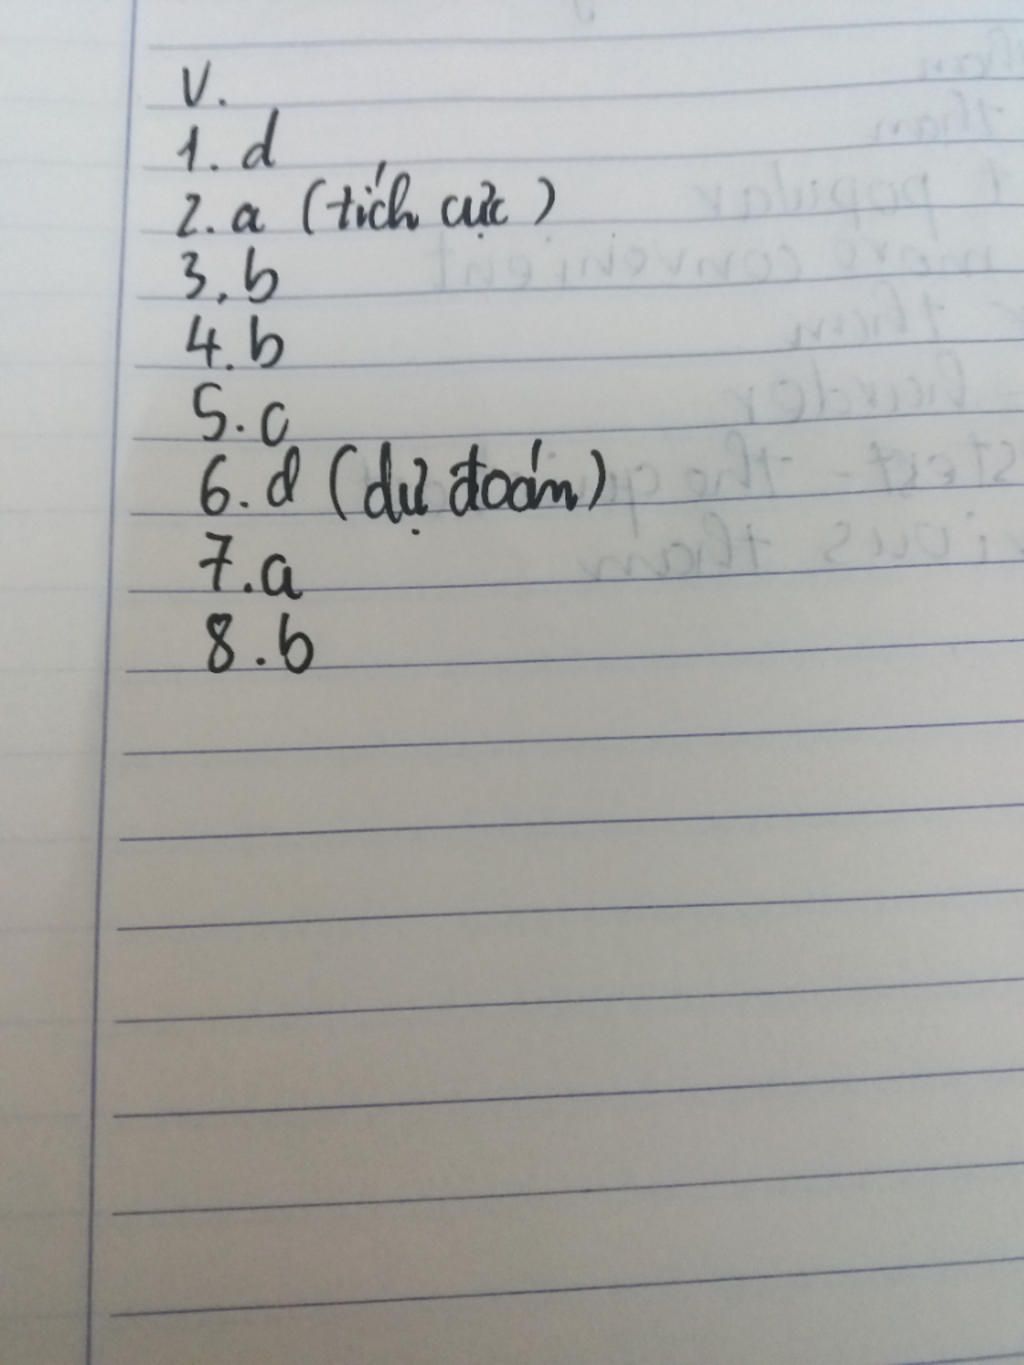 V.
1. d
2. a (tích cực)
3. b
4. b
5. c
6. d (dự đoán)
7. a
8. b